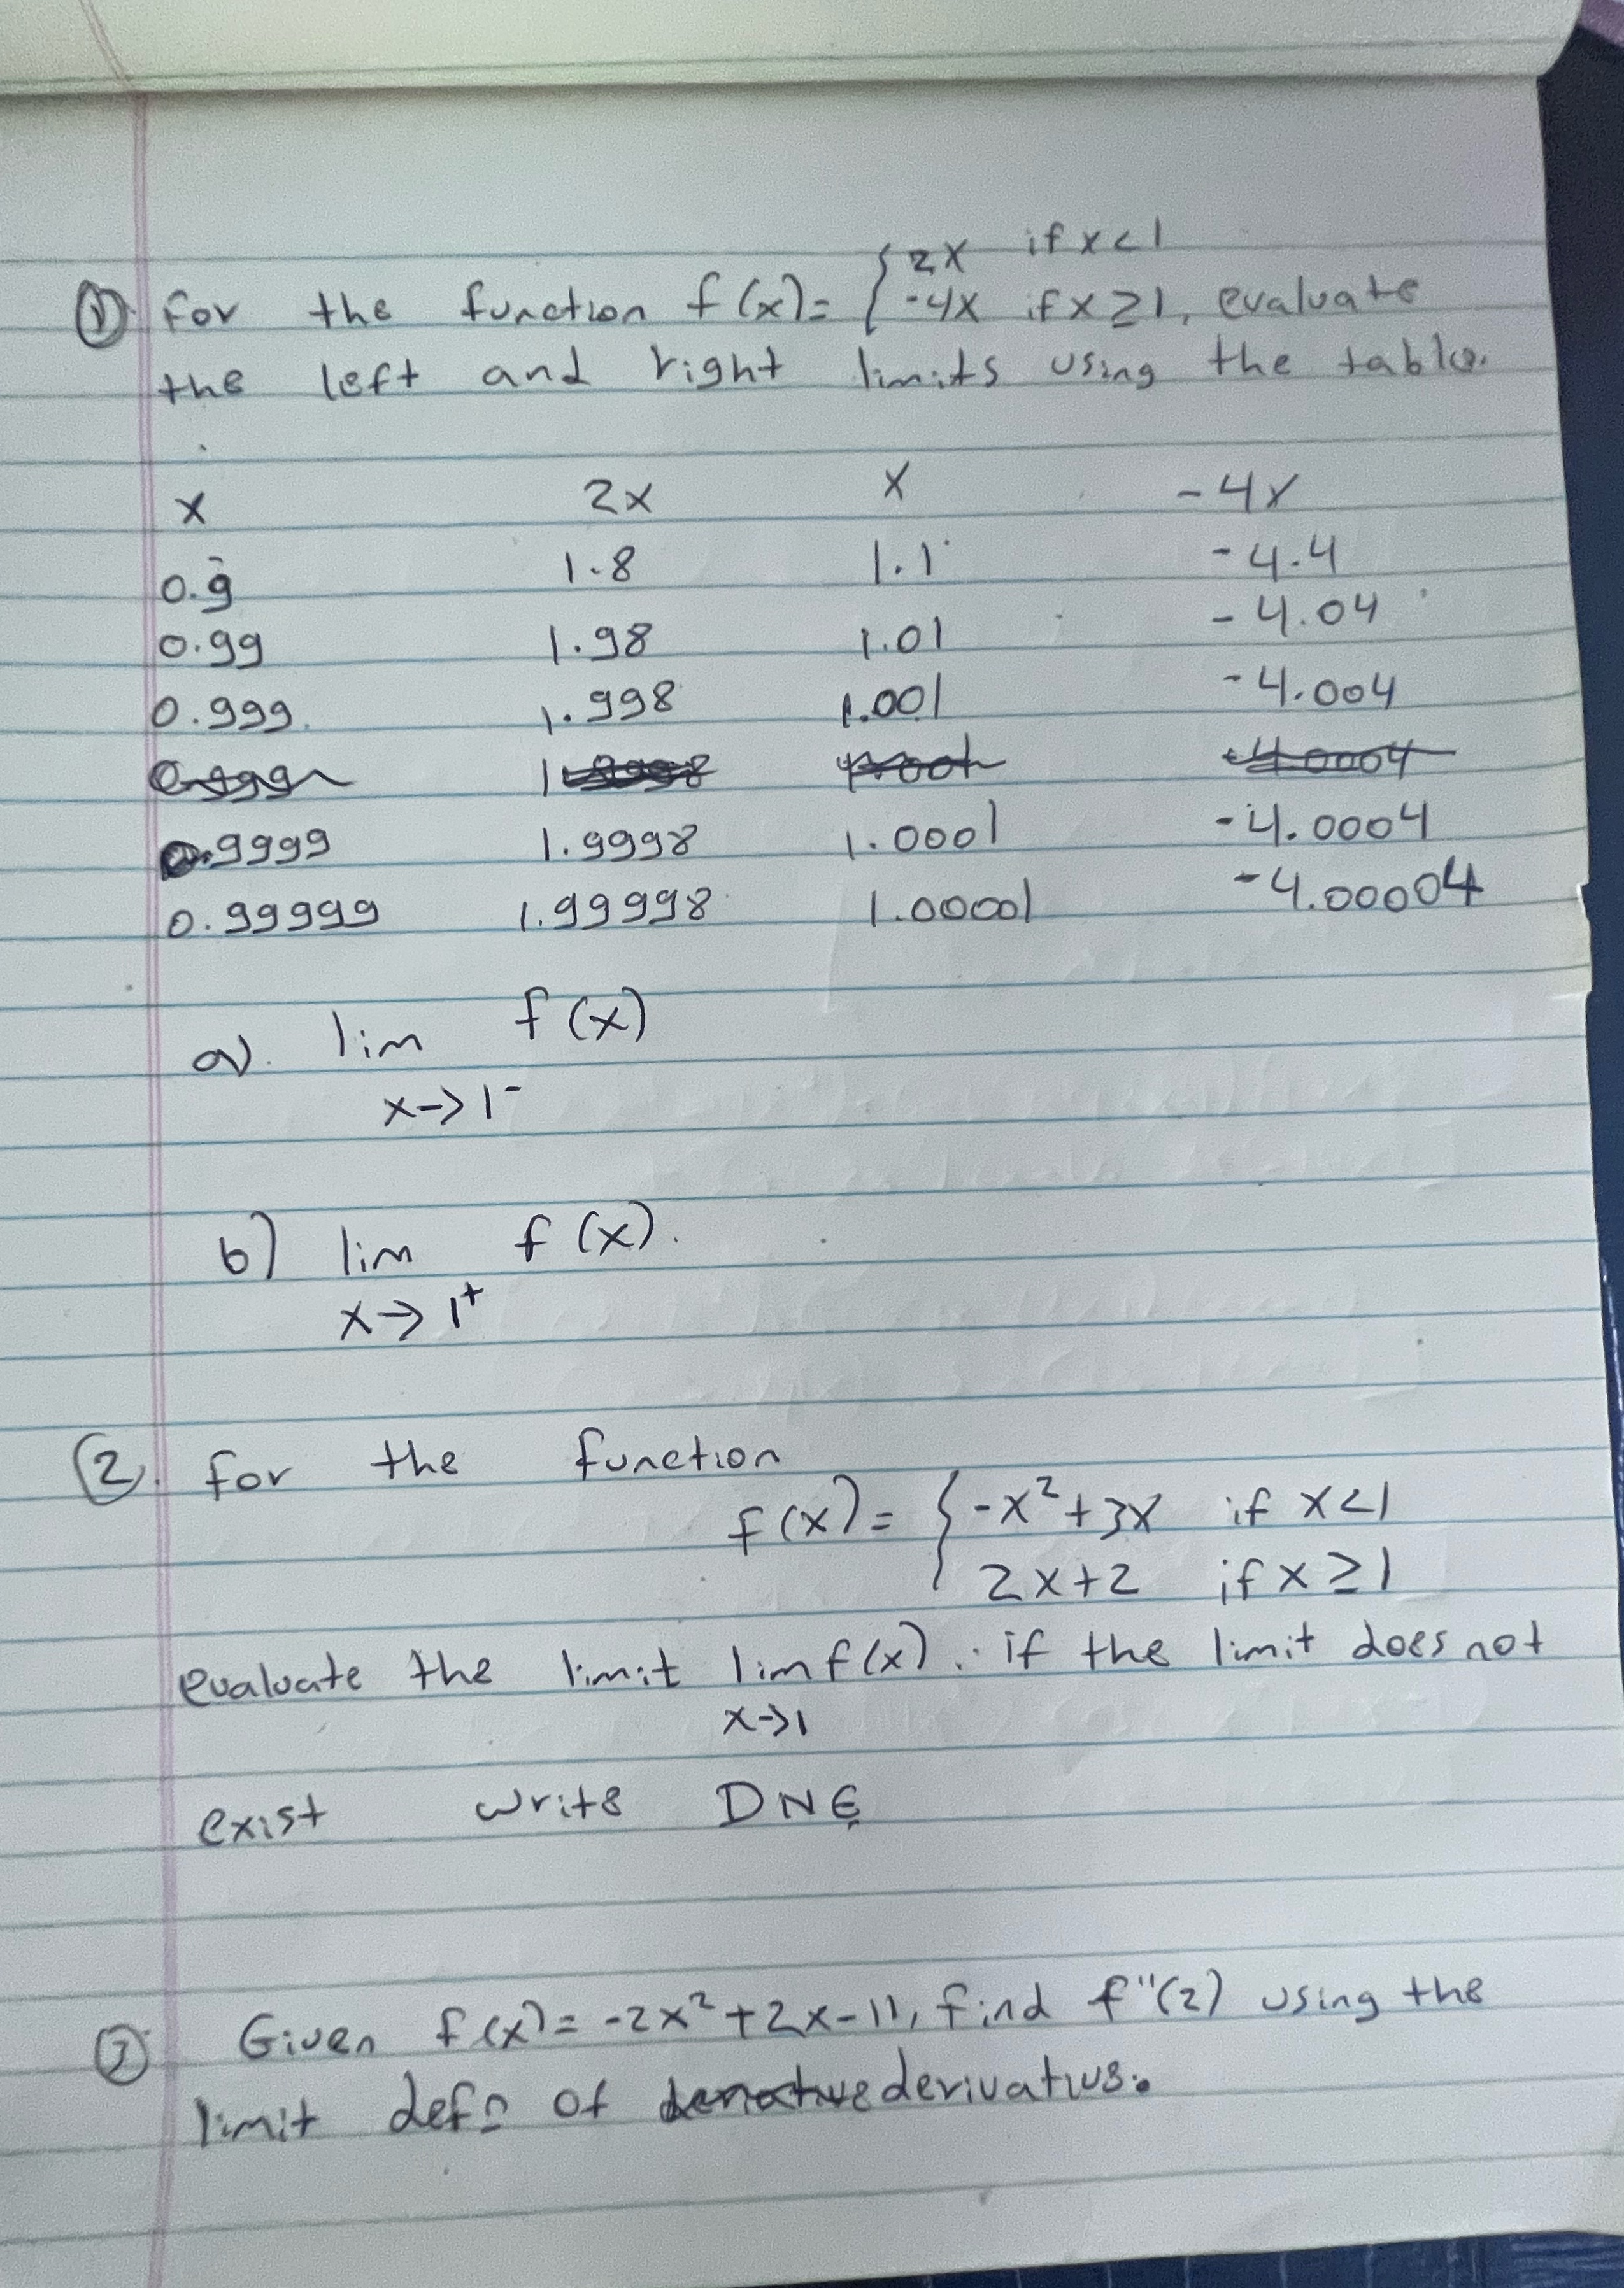 ① For the function f(x) = { 2x if x < 1
-4x if x ≥ 1, evaluate
the left and right limits using the table.
x 2x x -4x
0.9 1.8 1.1 -4.4
0.99 1.98 1.01 -4.04
0.999 1.998 1.001 -4.004
0.9999 1.9998 1.0001 -4.0004
0.99999 1.99998 1.00001 -4.00004
a). lim f(x)
x→1⁻
b) lim f(x).
x→1⁺
②. for the function
f(x) = { -x² + 3x if x < 1
2x+2 if x ≥ 1
evaluate the limit lim f(x). if the limit does not
x→1
exist write DNE
③ Given f(x) = -2x² + 2x - 11, find f"(2) using the
limit defn of derivative.